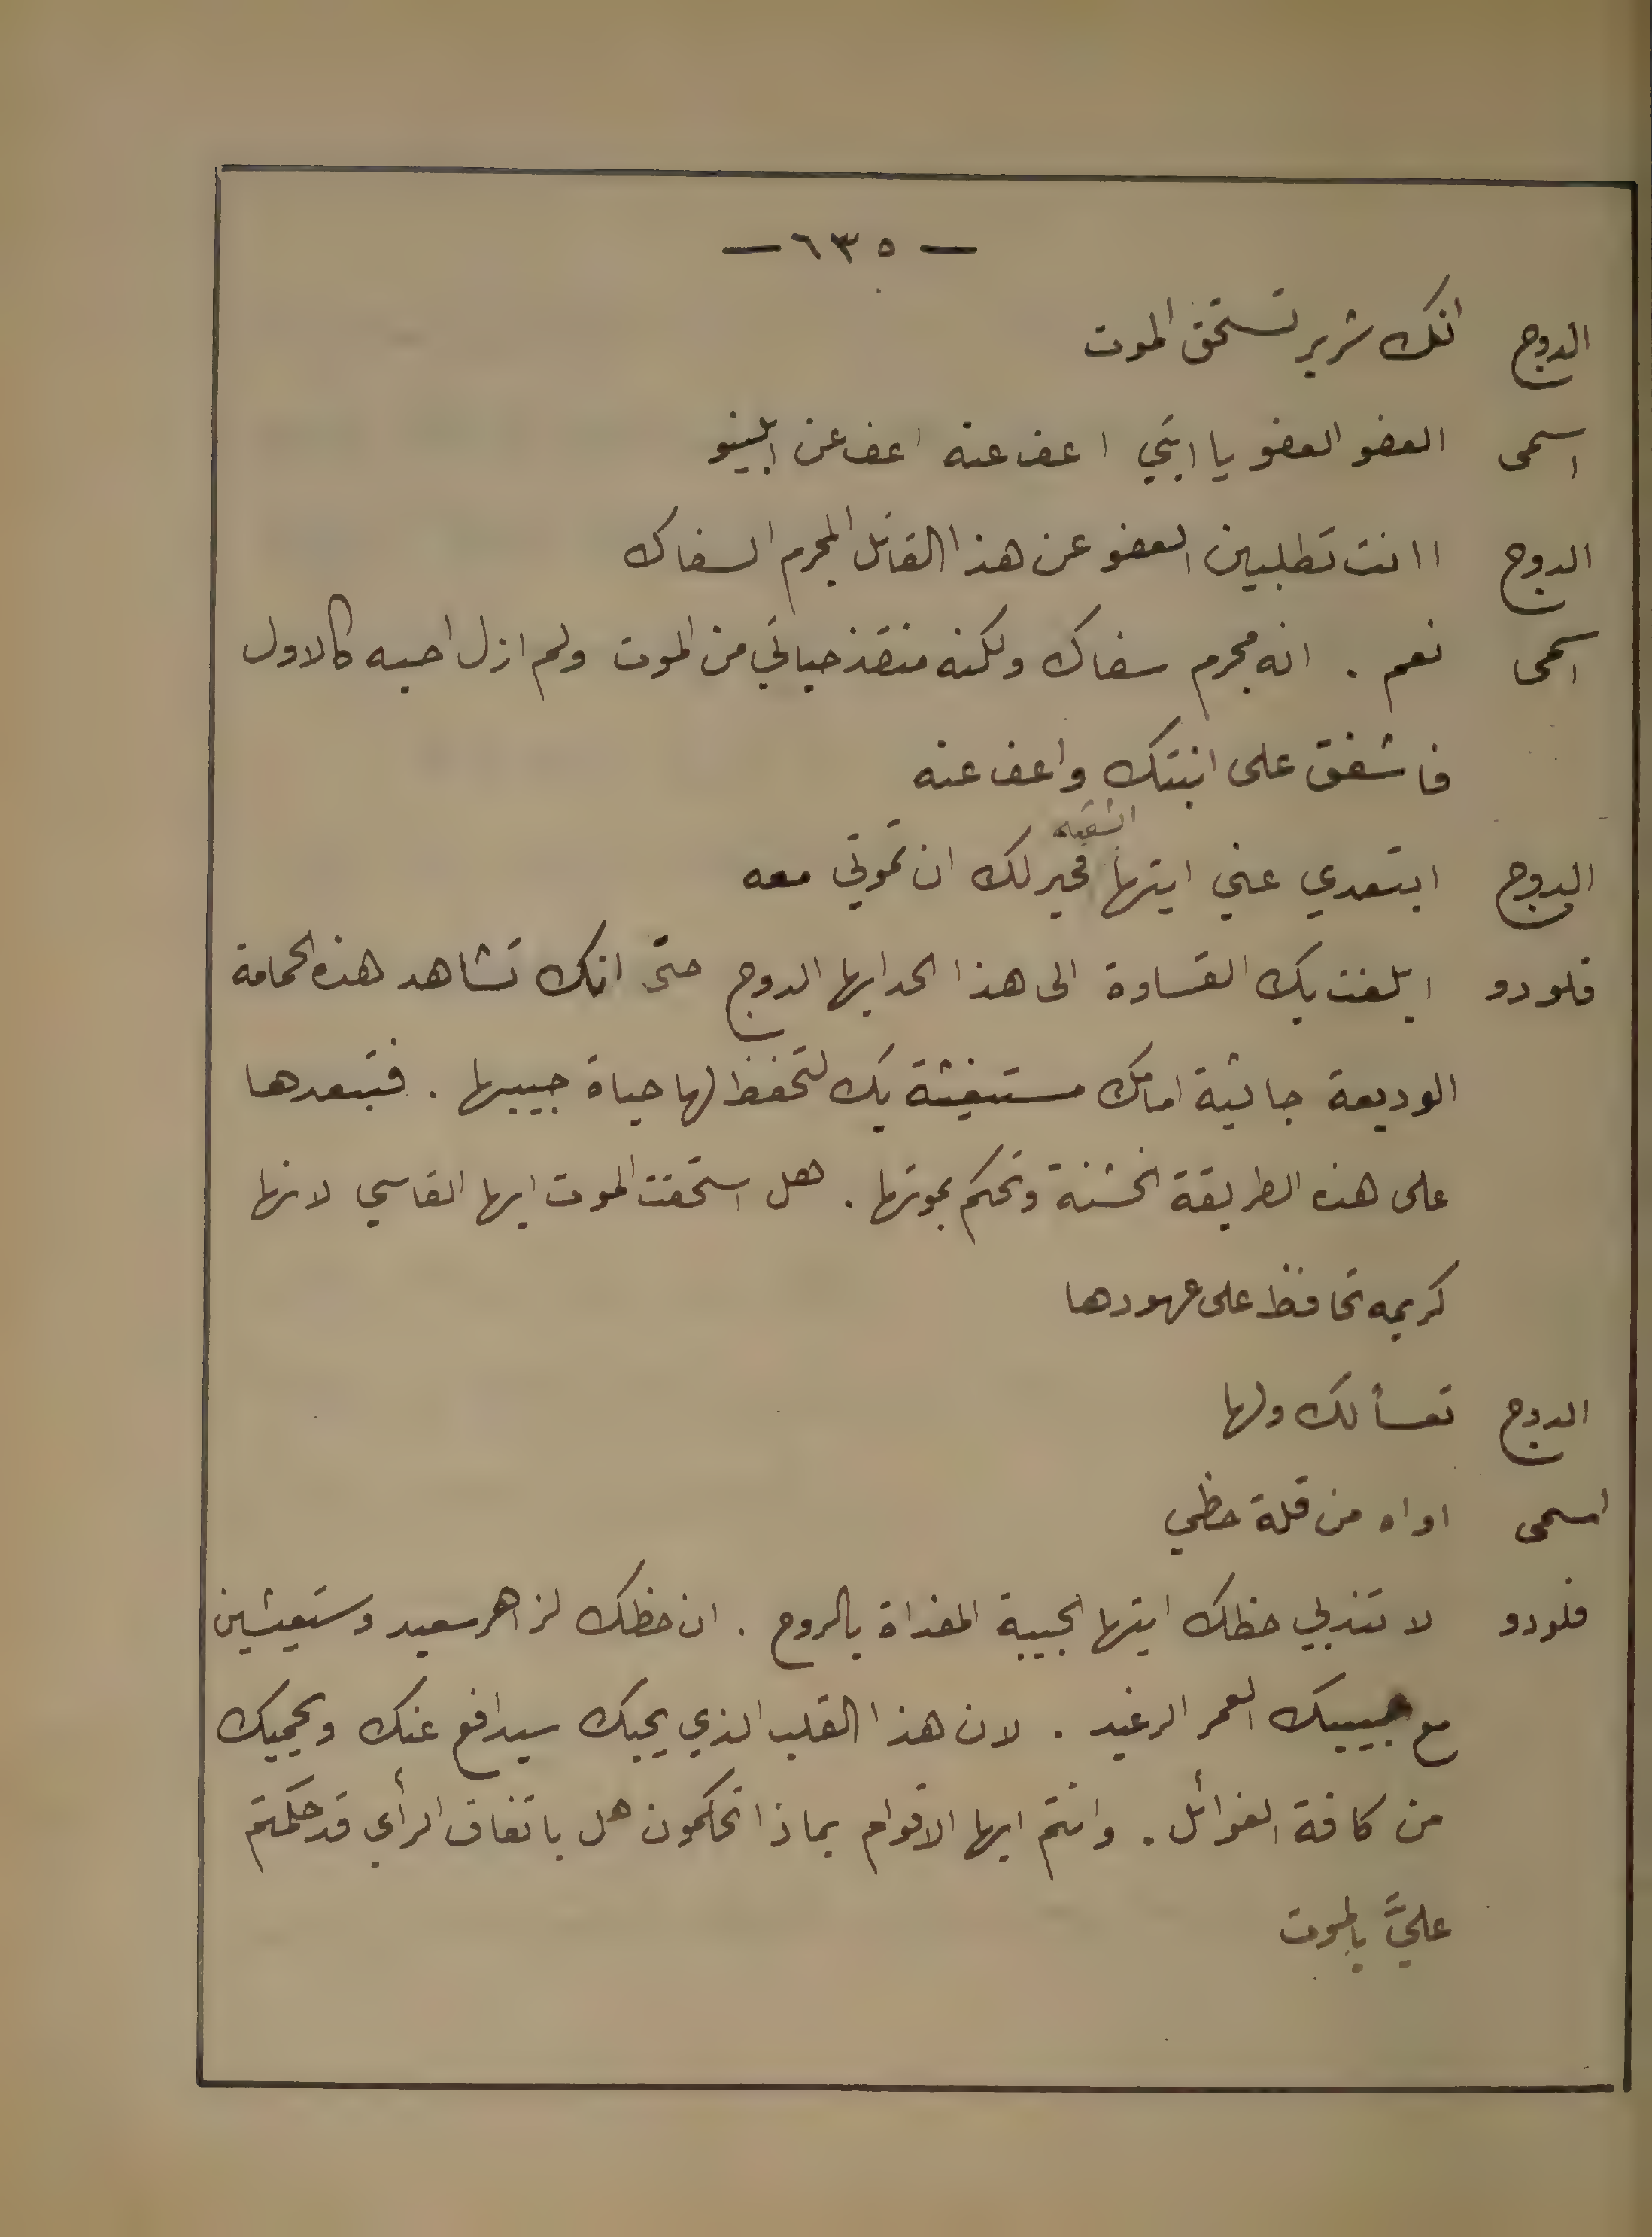 — ٦٣٥ —
الدوج انك شرير تستحق الموت
اسمى العفو العفو يا ابتي اعف عنه اعف عن البينو
الدوج اانت تطلبين العفو عن هذا القاتل المجرم السفاك
اسمى نعم . انه مجرم سفاك ولكنه منقذ حياتي من الموت ولم ازل احبه كالاول
فاشفق على ابنتك واعف عنه
الشقيه
الدوج ابتعدي عني ايتها فخير لك ان تموتي معه
فلودو ابلغت بك القساوة الى هذا الحد ايها الدوج حتى انك تشاهد هذه الحمامة
الوديعة جاثية امامك مستغيثة بك لتحفظ لها حياة حبيبها . فتبعدها
على هذه الطريقة الخشنة وتحكم بموتها . هل استحقت الموت ايها القاسي لانها
كريمه تحافظ على عهودها
الدوج تعسأ لك ولها
اسمى اواه من قلة حظي
فلودو لا تندبي حظك ايتها الحبيبة المفداة بالروح . ان حظك لزاهر سعيد وستعيشين
مع حبيبك العمر الرغيد . لان هذا القلب الذي يحبك سيدافع عنك ويحميك
من كافة الغوائل . وانتم ايها الاقوام بماذا تحكمون هل باتفاق الرأي قد حكمتم
عليَّ بالموت